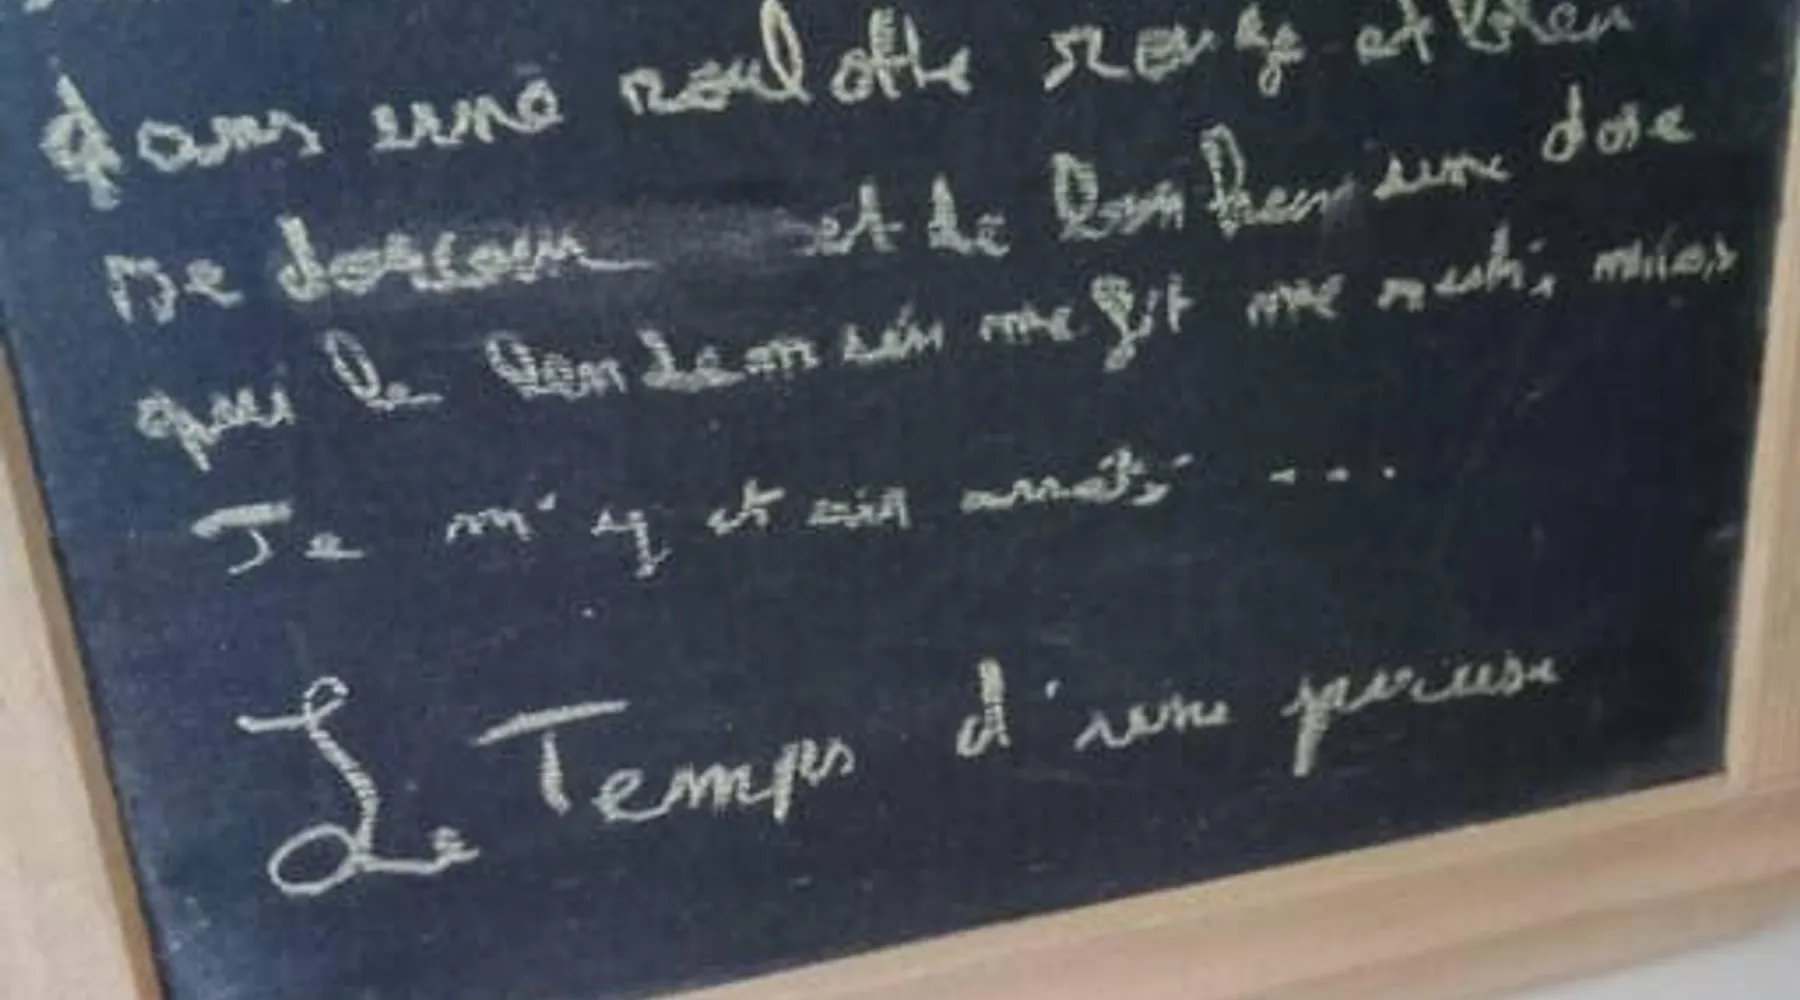 dans une roulotte rouge et bleu
De douceur et de bonheur une dose
que le lendemain me fit me
Je m'y étais arrêté ...
Le Temps d'une pause